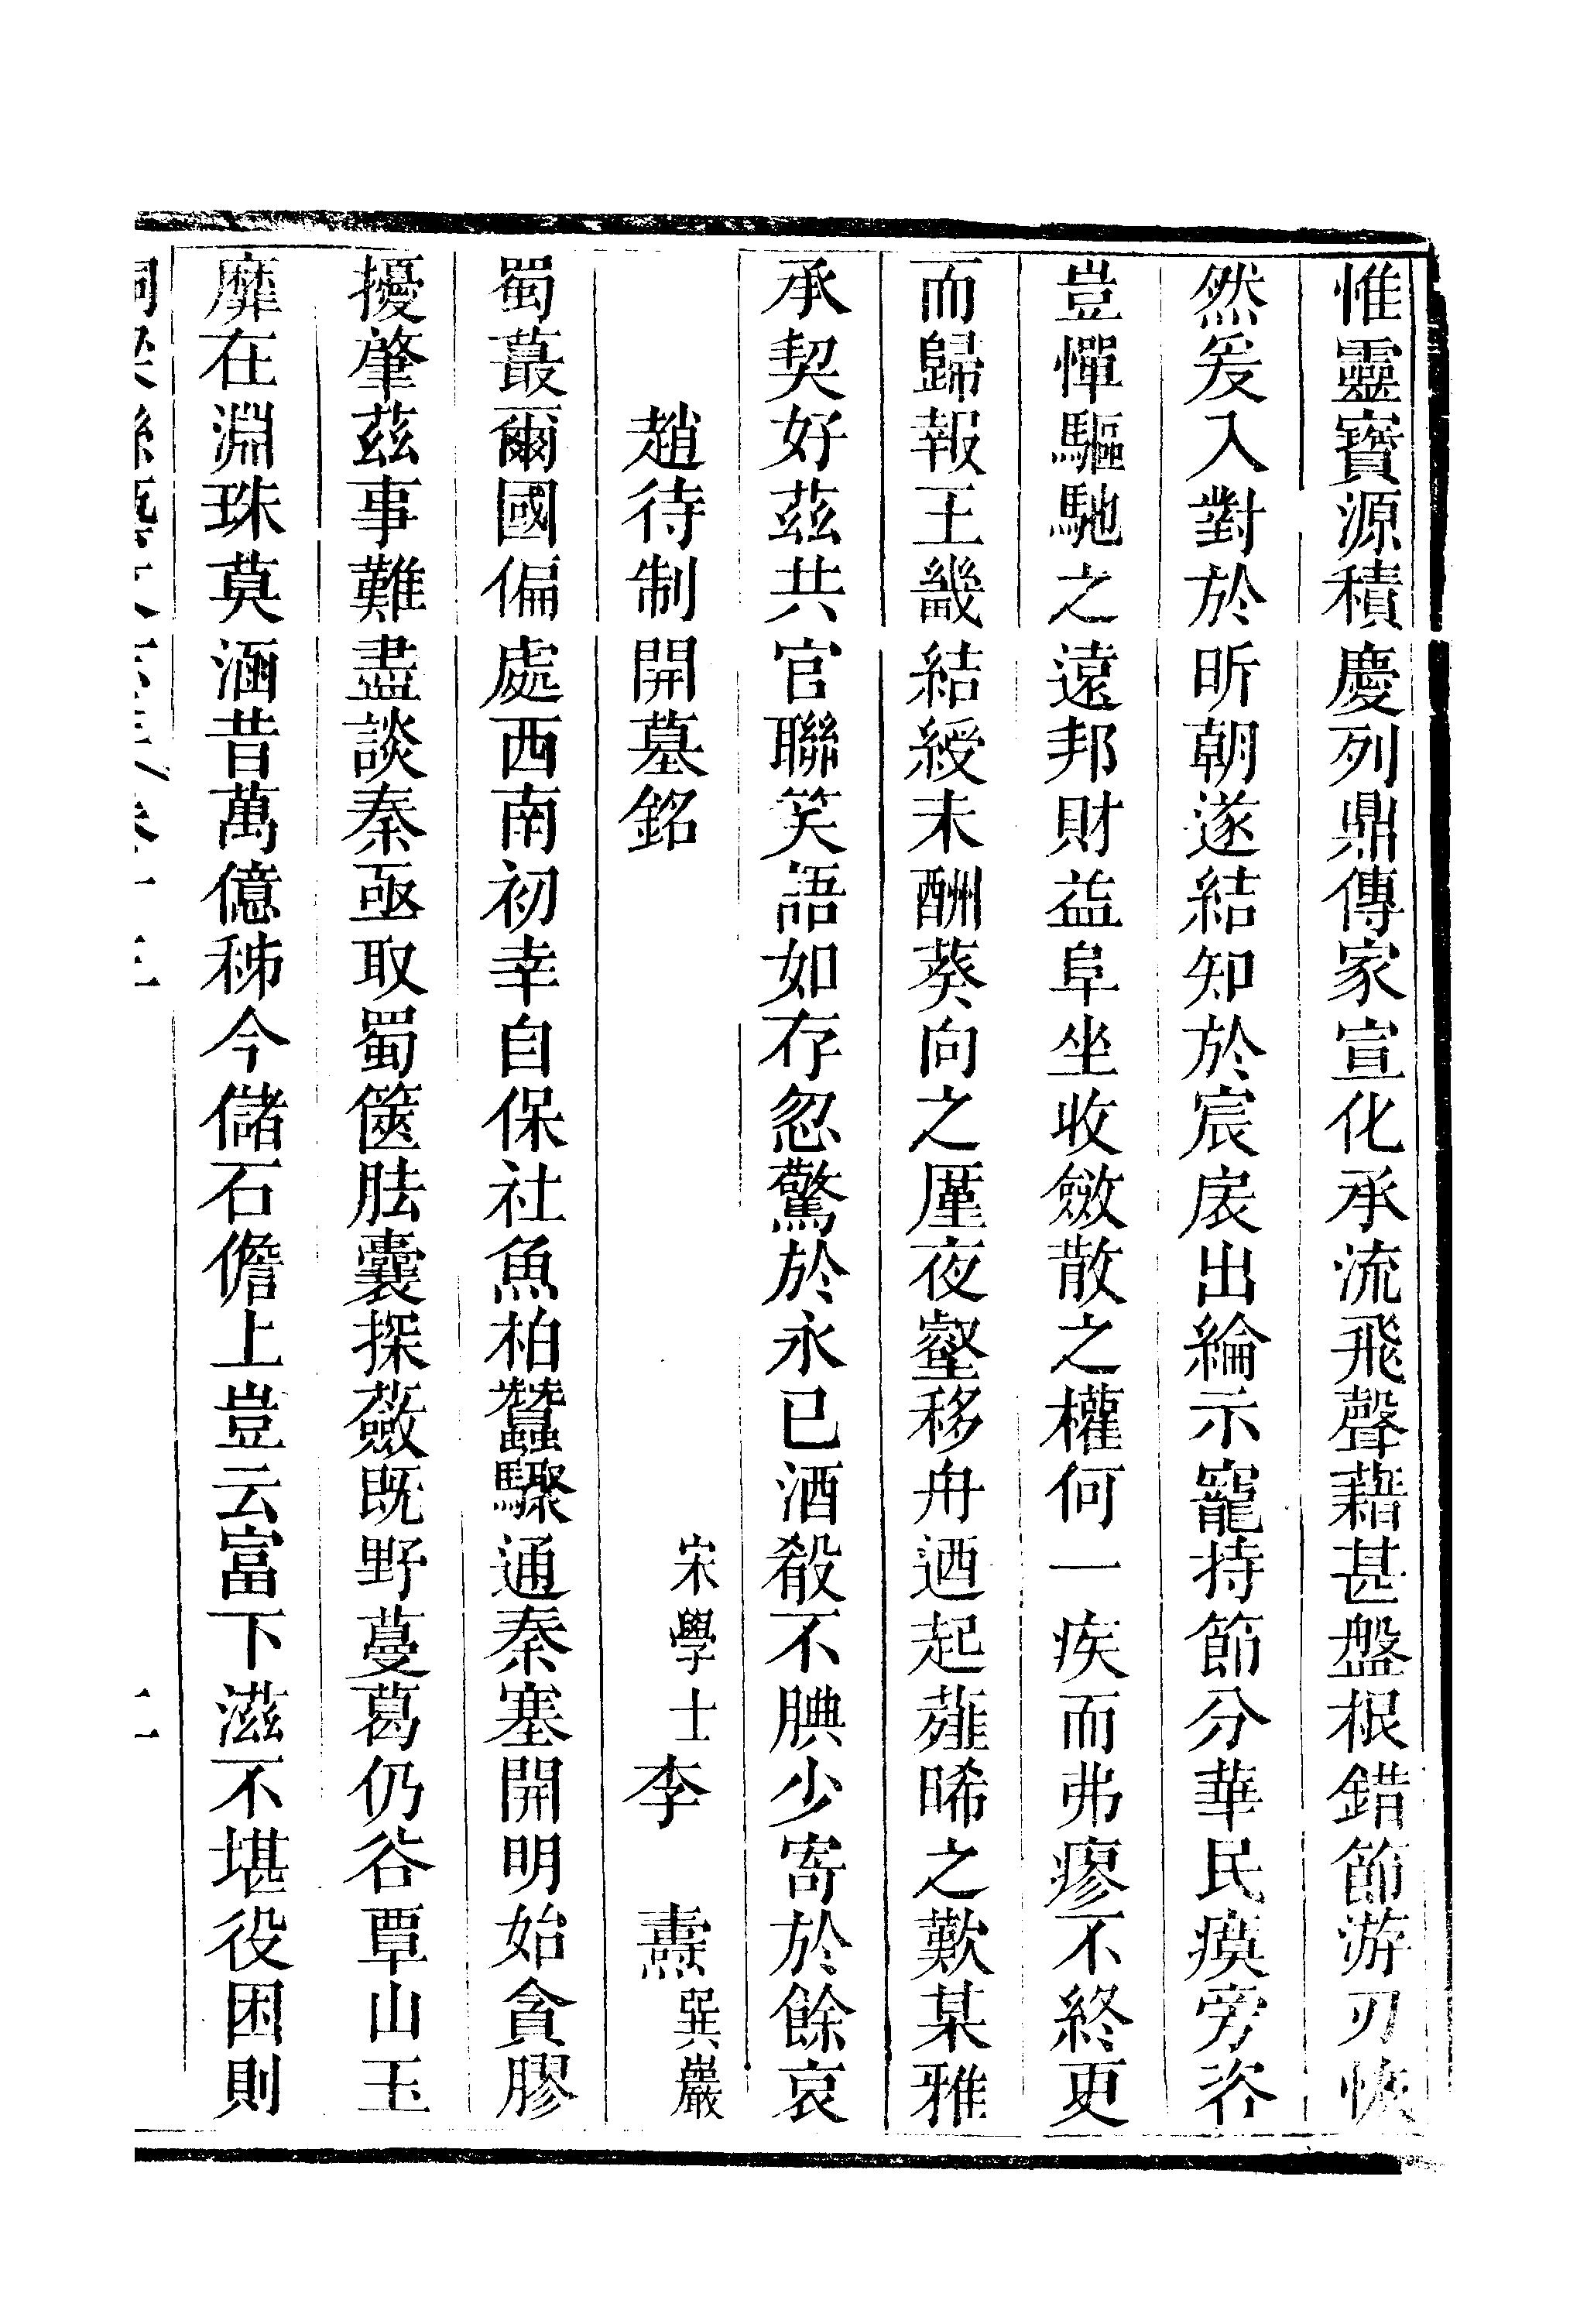 惟靈寶源積慶列鼎傳家宣化承流飛聲藉甚盤根錯節游刃恢
然爰入對於昕朝遂結知於宸扆出綸示寵持節分華民瘼旁咨
豈憚驅馳之遠邦財益阜坐收斂散之權何一疾而弗瘳不終更
而歸報王畿結綬未酬葵向之厪夜壑移舟迺起薤晞之歎某雅
承契好茲共官聯笑語如存忽驚於永已酒殽不腆少寄於餘哀
趙待制開墓銘
宋學士李燾巽巖
蜀蕞爾國偏處西南初幸自保社魚柏蠶驟通秦塞開明始貪膠
擾肇茲事難盡談秦亟取蜀篋胠囊探蘞既野蔓葛仍谷覃山玉
靡在淵珠莫涵昔萬億秭今儲石儋上豈云富下滋不堪役困則
銅梁縣藝文
卷十三
二